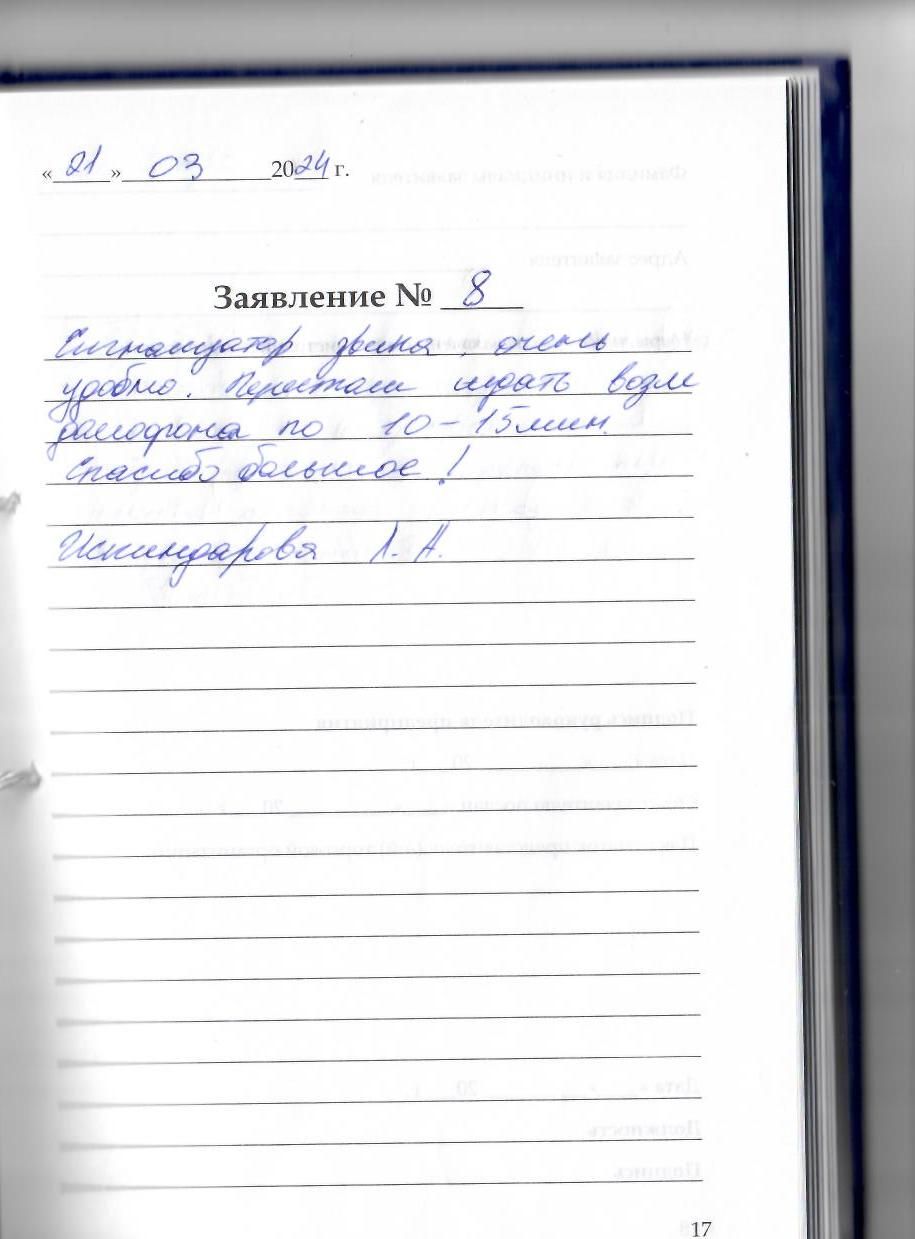 «21» 03 2024 г.
Заявление № 8
Сигнализатор звонка, очень
удобно. Перестали ждать возле
домофона по 10-15 мин.
Спасибо большое!
Искиндарова Л. А.
17